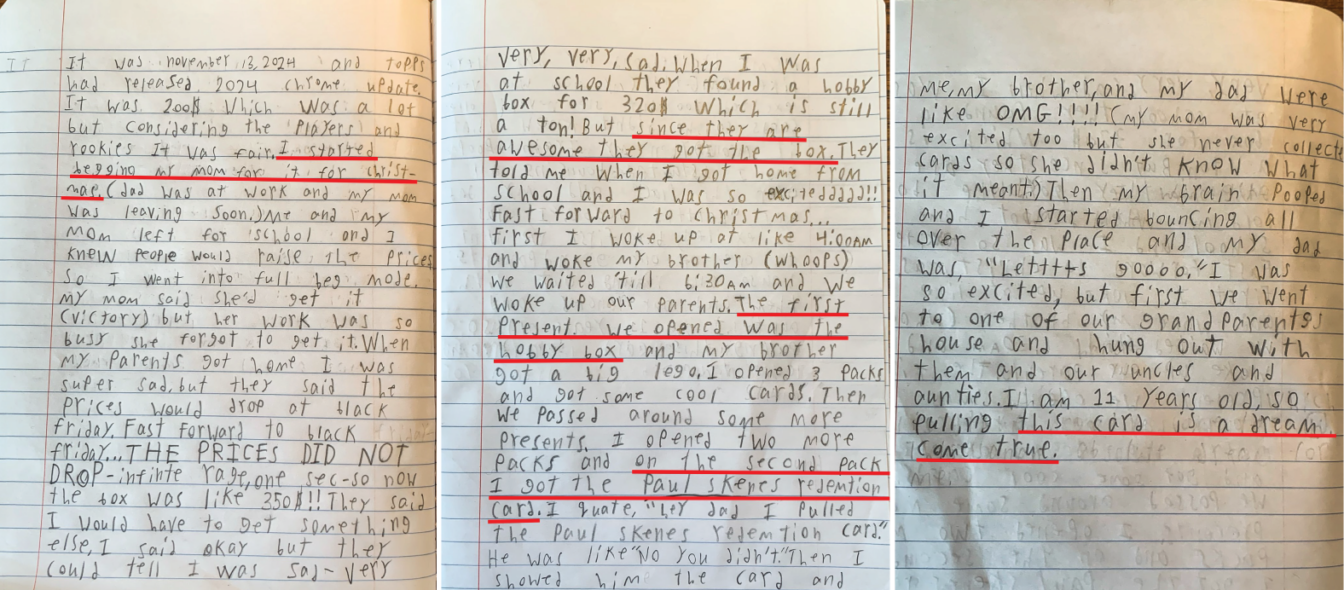 It was november 13, 2024 and topps
had released 2024 chrome update.
It was 200$ Which was a lot
but considering the Players and
rookies It was fair. I started
begging my mom for it for christ-
mae. (dad was at work and my mom
was leaving soon.) Me and my
mom left for school and I
knew people would raise the prices
so I went into full beg mode.
my mom said she'd get it
(victory) but her work was so
busy she forgot to get it. When
my parents got home I was
super sad, but they said the
prices would drop at black
friday. Fast forward to black
friday... THE PRICES DID NOT
DROP-infinte rage, one sec-so now
the box was like 350$!! They said
I would have to get something
else, I said okay but they
could tell I was sad-very
very, very, sad. When I was
at school they found a hobby
box for 320$ Which is still
a ton! But since they are
awesome they got the box. They
told me when I got home from
school and I was so exciteddddd!!
Fast forward to christmas...
first I woke up at like 4:00AM
and woke my brother (whoops)
we waited 'till 6:30AM and we
woke up our parents. The first
present we opened was the
hobby box and my brother
got a big lego, I opened 3 packs
and got some cool cards. Then
we passed around some more
presents. I opened two more
packs and on the second pack
I got the Paul skenes redemtion
card. I quate, "Ley dad I pulled
the Paul skenes redemtion card."
He was like "No you didn't." Then I
showed him the card and
me, my brother, and my dad were
like OMG!!!! (my mom was very
excited too but she never collects
cards so she didn't know what
it meant.) Then my brain pooped
and I started bouncing all
over the place and my dad
was, "Letttts goooo," I was
so excited, but first we went
to one of our grandparents
house and hung out with
them and our uncles and
aunties. I am 11 years old, so
pulling this card is a dream
come true.